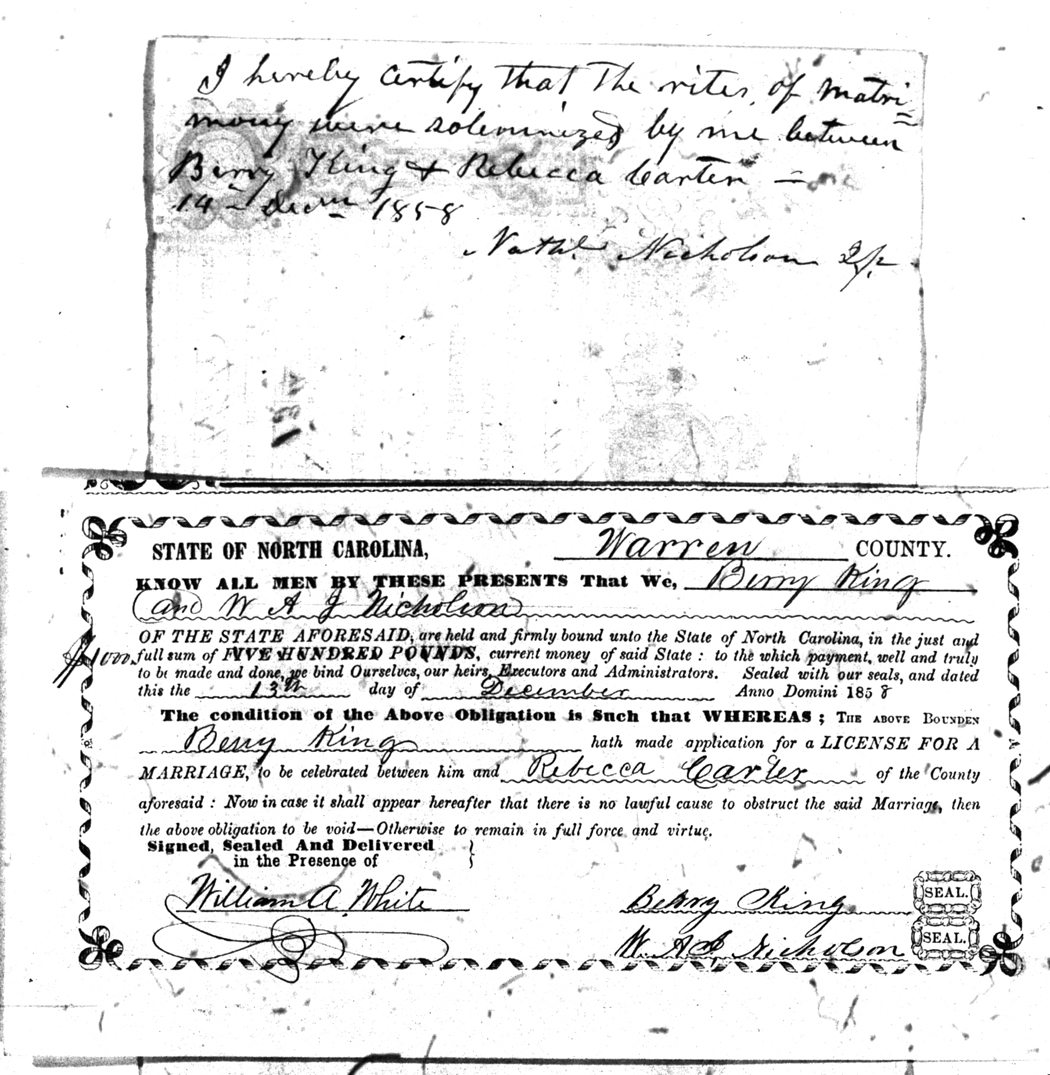 I hereby certify that The rites of matri=
mony were solemnized by me between
Berry King & Rebecca Carter —
14th Decm 1858
Nathl Nicholson Jp.
STATE OF NORTH CAROLINA, Warren COUNTY.
KNOW ALL MEN BY THESE PRESENTS That We, Berry King
(and W A J Nicholson)
OF THE STATE AFORESAID, are held and firmly bound unto the State of North Carolina, in the just and
$1000. full sum of FIVE HUNDRED POUNDS, current money of said State : to the which payment, well and truly
to be made and done, we bind Ourselves, our heirs, Executors and Administrators. Sealed with our seals, and dated
this the 13th day of December Anno Domini 1858
The condition of the Above Obligation is Such that WHEREAS ; THE ABOVE BOUNDEN
Berry King hath made application for a LICENSE FOR A
MARRIAGE, to be celebrated between him and Rebecca Carter of the County
aforesaid : Now in case it shall appear hereafter that there is no lawful cause to obstruct the said Marriage, then
the above obligation to be void—Otherwise to remain in full force and virtue.
Signed, Sealed And Delivered
in the Presence of
William A. White Berry King SEAL.
W. A J Nicholson SEAL.